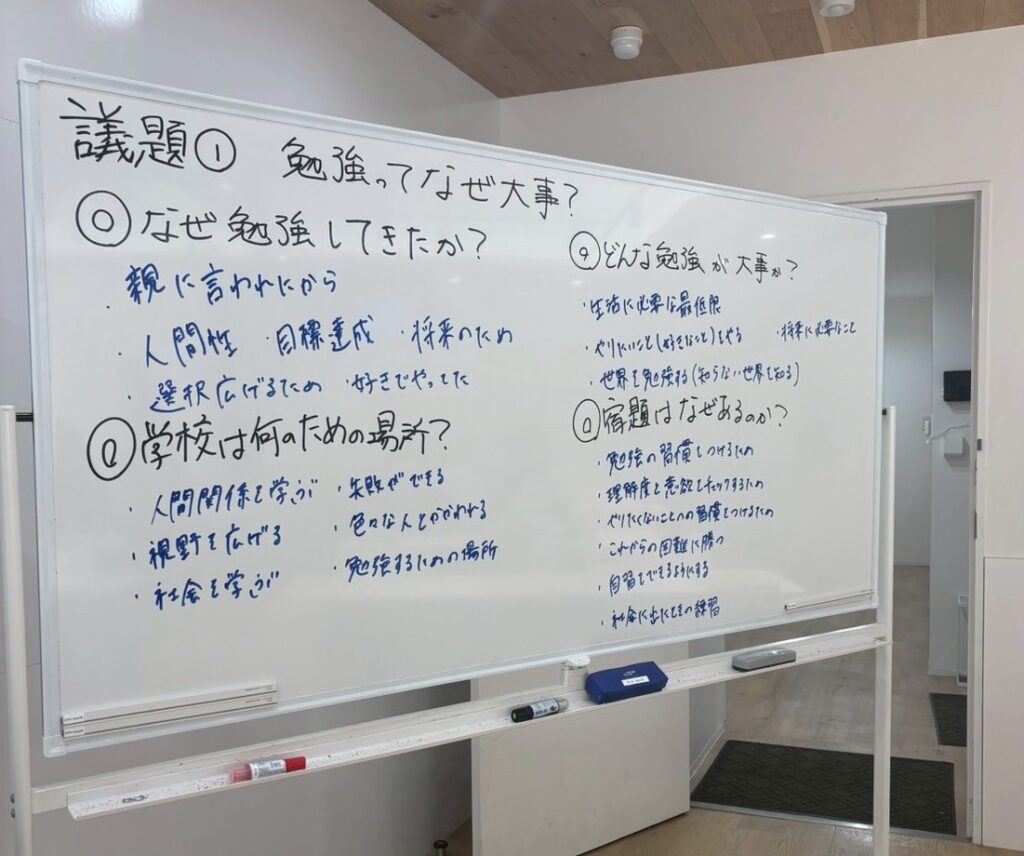 議題① 勉強ってなぜ大事?
Ⓠなぜ勉強してきたか?
・親に言われたから
・人間性 ・目標達成 ・将来のため
・選択広げるため ・好きでやってた
Ⓠ学校は何のための場所?
・人間関係を学ぶ ・失敗ができる
・視野を広げる ・色々な人とかかわれる
・社会を学ぶ ・勉強するための場所
Ⓠどんな勉強が大事か?
・生活に必要な最低限
・やりたいこと(好きなこと)をやる ・将来に必要なこと
・世界を勉強する(知らない世界を知る)
Ⓠ宿題はなぜあるのか?
・勉強の習慣をつけるため
・理解度と意欲をチェックするため
・やりたくないことへの習慣をつけるため
・これからの困難に勝つ
・自習をできるようにする
・社会に出たときの練習